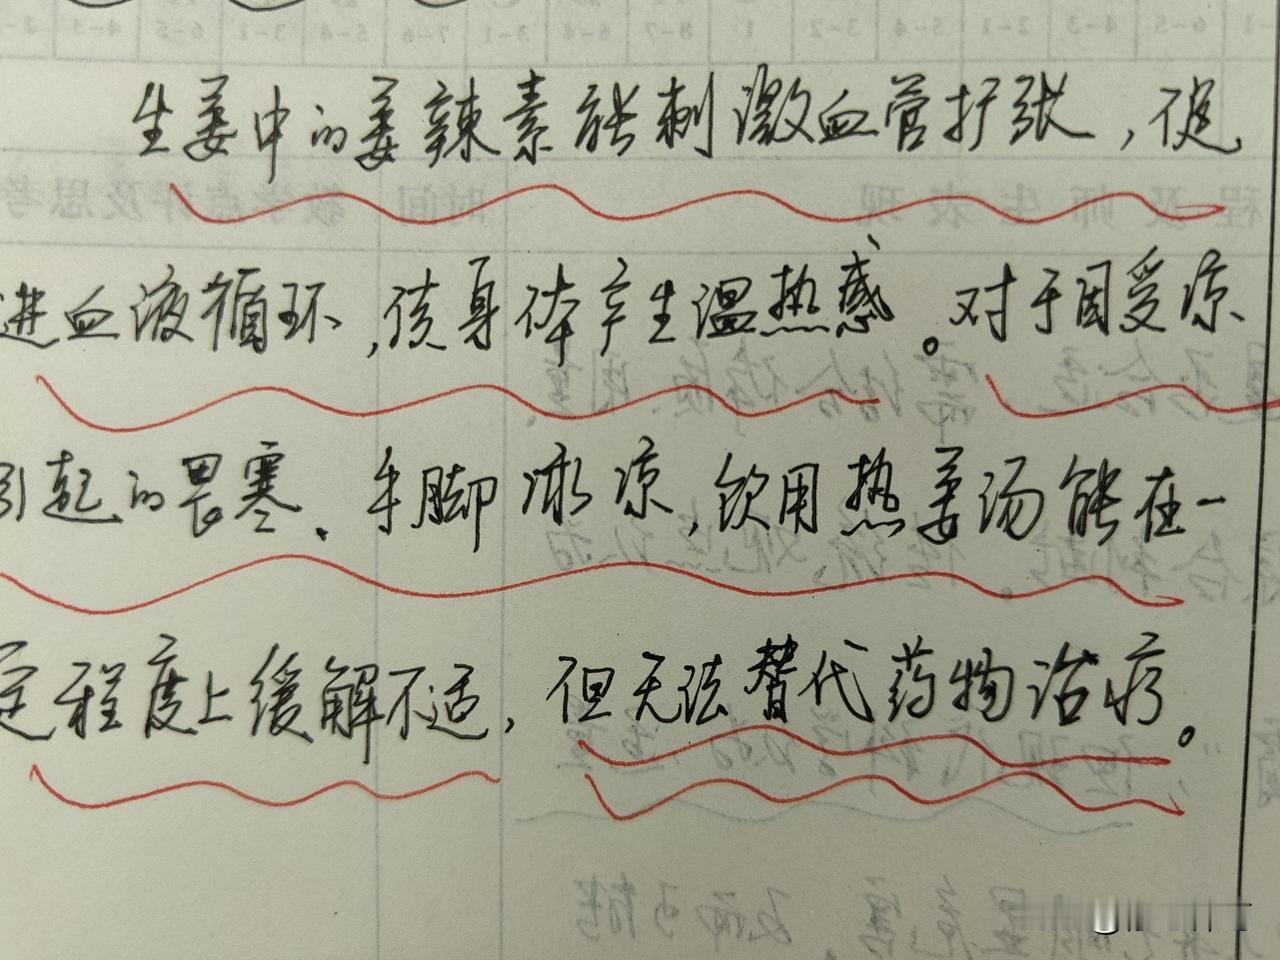 生姜中的姜辣素能刺激血管扩张，促
进血液循环，使身体产生温热感。对于因受凉
引起的畏寒、手脚冰凉，饮用热姜汤能在一
定程度上缓解不适，但无法替代药物治疗。